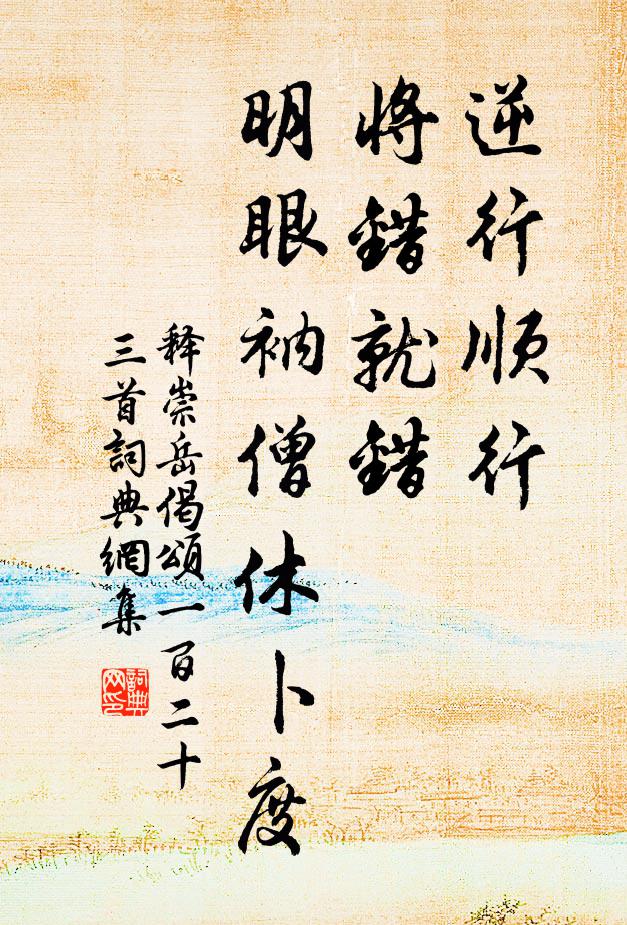 逆行顺行
將錯就錯
明眼衲僧休卜度
释崇岳偈頌一百二十
三首詞典網集
詞典网印